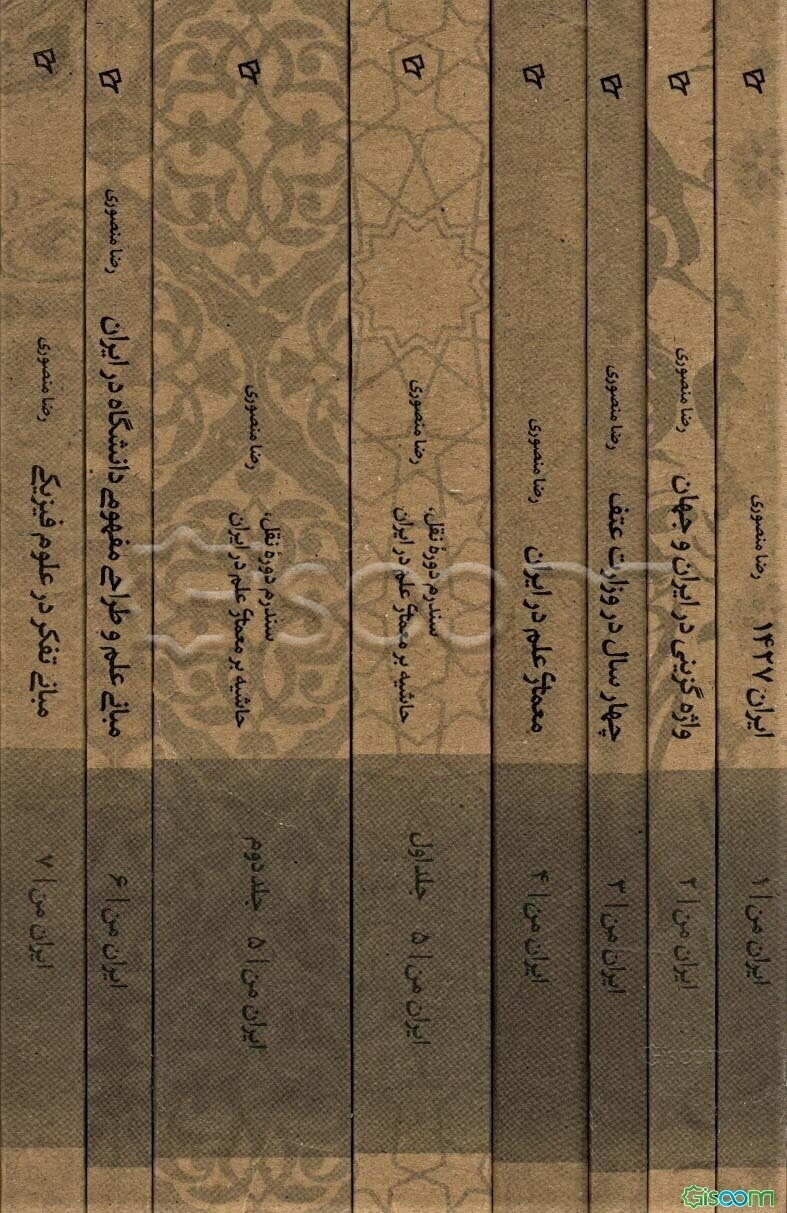 رضا منصوری
ایران ۱۴۲۷
ایران من | ۱
رضا منصوری
واژه گزینی در ایران و جهان
ایران من | ۲
رضا منصوری
چهار سال در وزارت عتف
ایران من | ۳
رضا منصوری
معماری علم در ایران
ایران من | ۴
رضا منصوری
سندرم دورهٔ نقل،
حاشیه بر معماری علم در ایران
جلد اول
ایران من | ۵
رضا منصوری
سندرم دورهٔ نقل،
حاشیه بر معماری علم در ایران
جلد دوم
ایران من | ۵
رضا منصوری
مبانی علم و طراحی مفهومی دانشگاه در ایران
ایران من | ۶
رضا منصوری
مبانی تفکر در علوم فیزیکی
ایران من | ۷
Gisoom
Gisoom
Gisoom